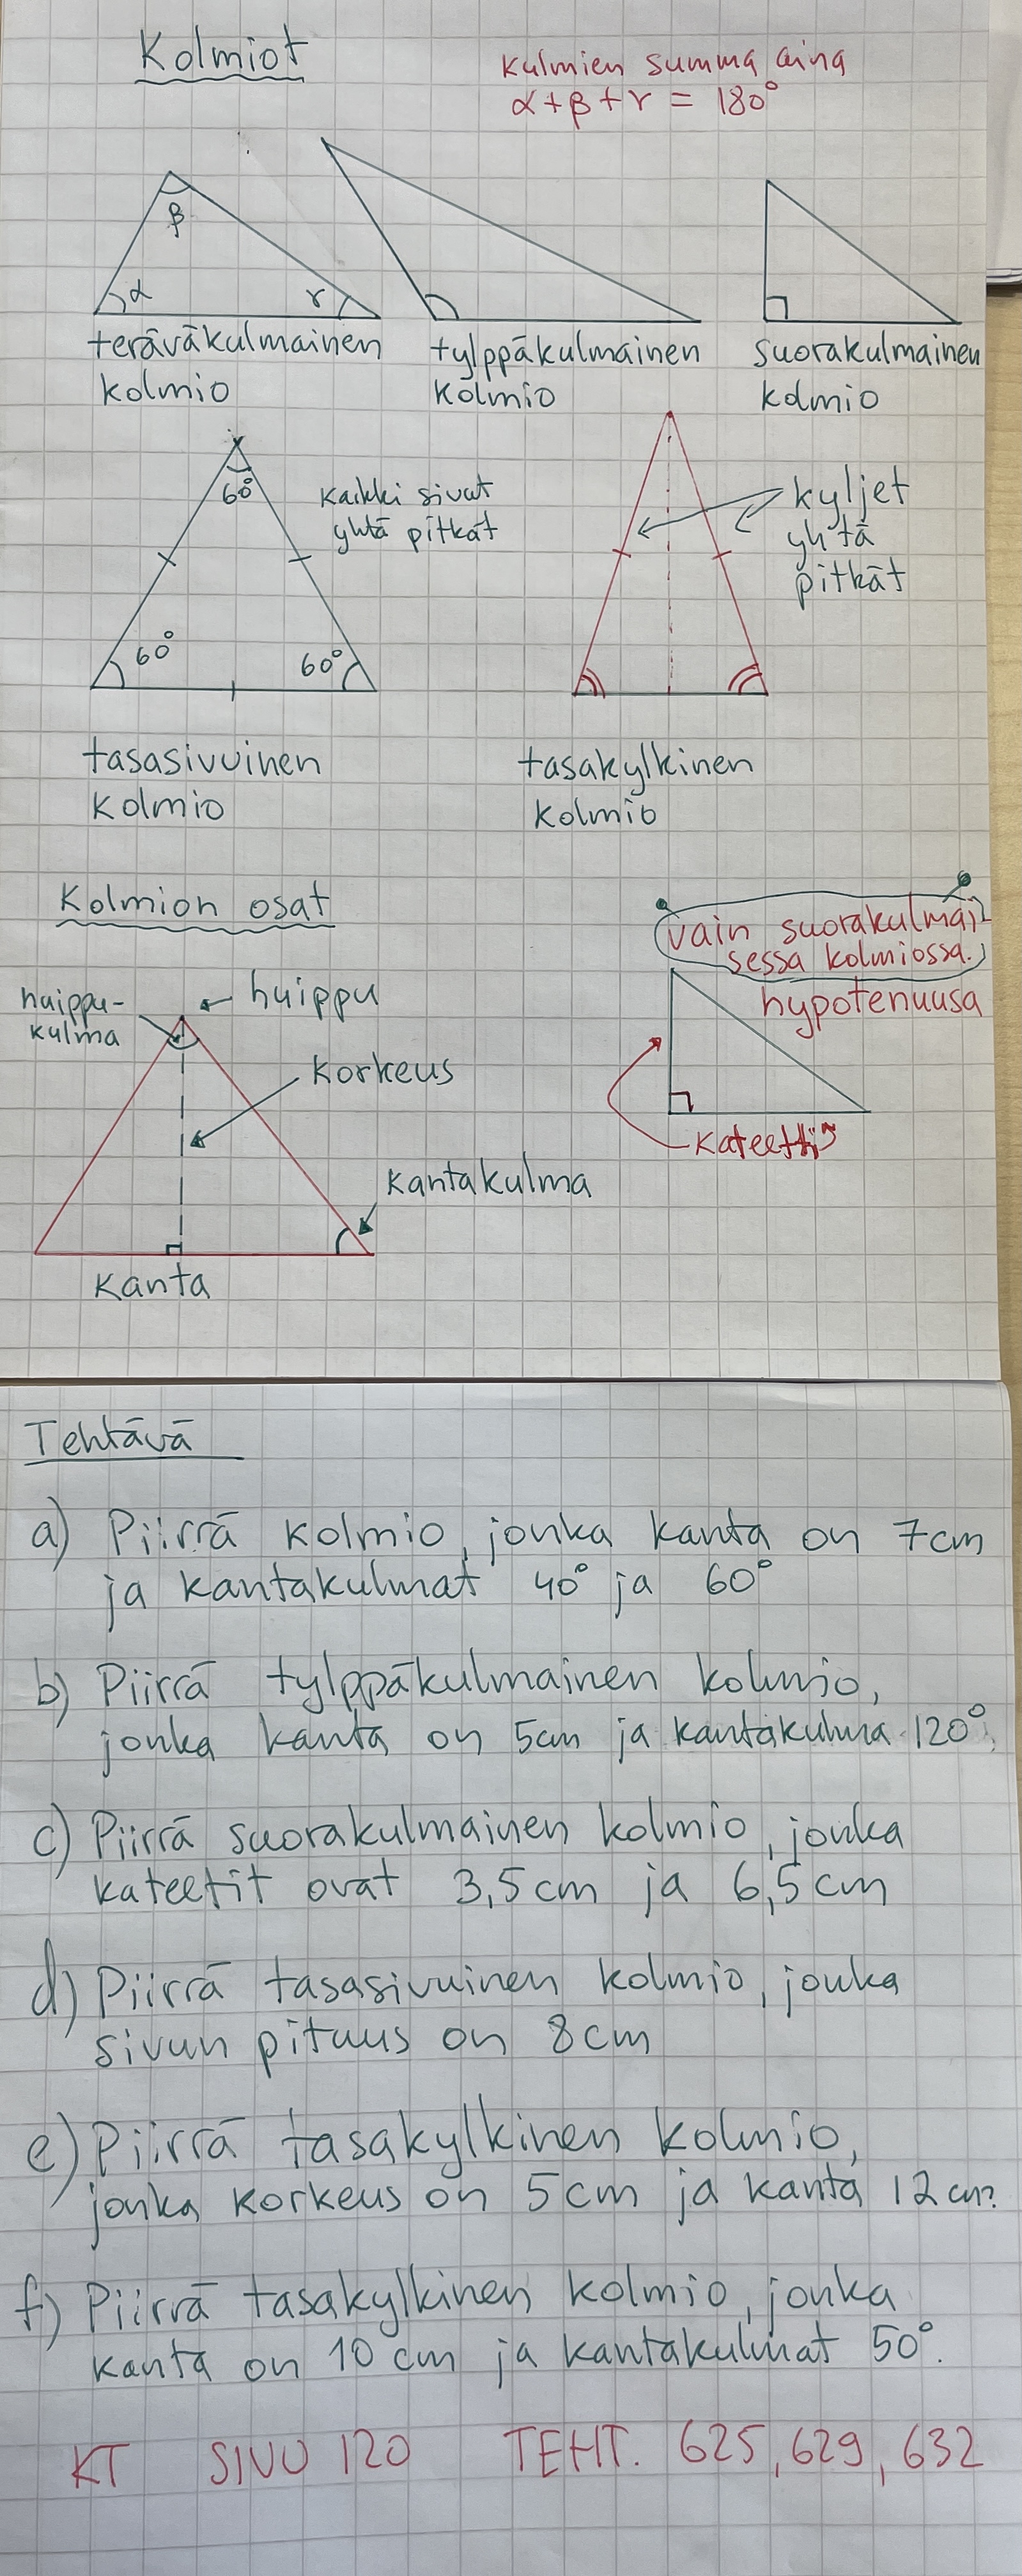 Kolmiot
Kulmien summa aina
α+β+γ = 180°
β
α
γ
teräväkulmainen
kolmio
tylppäkulmainen
kolmio
suorakulmainen
kolmio
60°
kaikki sivut
yhtä pitkät
60°
60°
kyljet
yhtä
pitkät
tasasivuinen
kolmio
tasakylkinen
kolmio
Kolmion osat
vain suorakulmai-
sessa kolmiossa.
huippu-
kulma
huippu
hypotenuusa
korkeus
kateetti
kantakulma
kanta
Tehtävä
a) Piirrä kolmio, jonka kanta on 7cm
ja kantakulmat 40° ja 60°
b) Piirrä tylppäkulmainen kolmio,
jonka kanta on 5cm ja kantakulma 120°.
c) Piirrä suorakulmainen kolmio, jonka
kateetit ovat 3,5cm ja 6,5cm
d) Piirrä tasasivuinen kolmio, jonka
sivun pituus on 8cm
e) Piirrä tasakylkinen kolmio,
jonka korkeus on 5cm ja kanta 12cm.
f) Piirrä tasakylkinen kolmio, jonka
kanta on 10 cm ja kantakulmat 50°.
KT SIVU 120 TEHT. 625, 629, 632